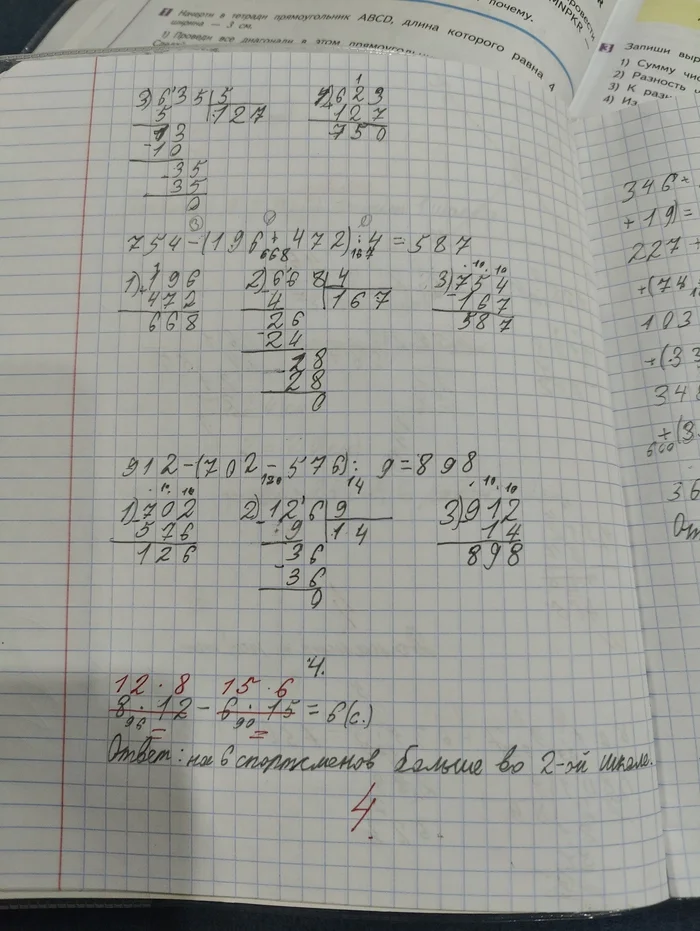 1 Начерти в тетради прямоугольник ABCD, длина которого равна 4
ширина — 3 см.
1) Проведи все диагонали в этом
почему.
MNPKR —
3 Запиши
1) Сумму
2) Разность
3) К
4) Из
3) 635 | 5
5 | 127
13
- 10
- 35
35
0
4) 623
127
750
1
3
754 - (196 + 472) : 4 = 587
668 167
1) 196
+ 472
668
2) 668 | 4
- 4 | 167
26
- 24
- 28
28
0
3) 754
- 167
587
. 10 . 10
912 - (702 - 576) : 9 = 898
14
1) 702
- 576
126
. 10 10
2) 126 | 9
- 9 | 14
36
- 36
0
3) 912
- 14
898
. 10 . 10
4.
12 · 8 15 · 6
8 · 12 - 6 · 15 = 6 (с.)
96 90
Ответ: на 6 спортсменов больше во 2-ой школе.
4
346
+ 19) =
227 +
+ (74
103
+ (33
348
+ (3
600
36